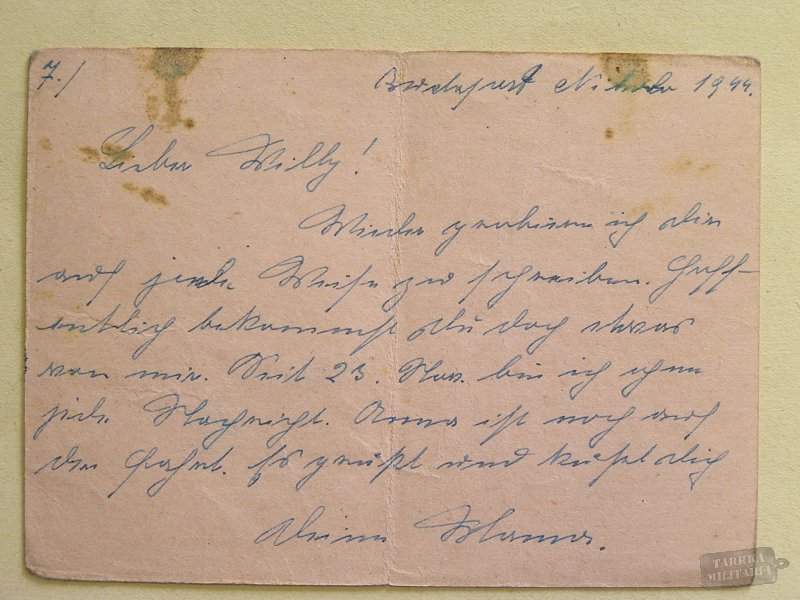 7./
Budapest Nikolo 1944.
Lieber Willy!
Wieder probiere ich dir
auf jede Weise zu schreiben. Hoff-
entlich bekommst du doch etwas
von mir. Seit 23. Nov. bin ich ohne
jede Nachricht. Anna ist noch auf
der Fahrt. Es grüßt und küßt dich
Deine Mama.
TARRKA
MILITARIA